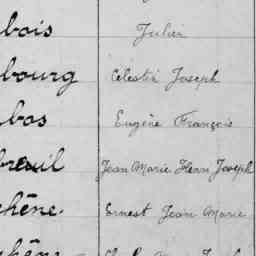 bois Julien
bourg Célestin Joseph
bos Eugène François
breuil Jean Marie Henri Joseph
chêne. Ernest Jean Marie